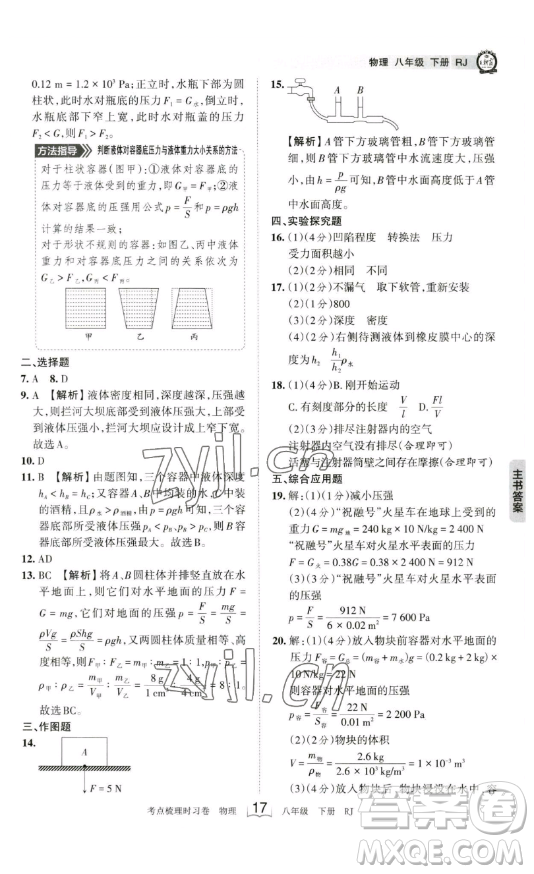 物理 八年级 下册 RJ
0.12 m = 1.2 × 10³ Pa;正立时,水瓶下部为圆
柱状,此时水对瓶底的压力 F₁ = G水;倒立时,
水瓶底部下窄上宽,此时水对瓶盖的压力
F₂ < G水,所以 F₁ > F₂。
方法指导 判断液体对容器底压力与液体重力大小关系的方法
对于柱状容器(图甲):①液体对容器底的
压力等于液体受到的重力,即 G甲 = F甲;②液
体对容器底的压强用公式 p = F/S 和 p = ρgh
计算的结果一致;
对于形状不规则的容器:如图乙、丙,液体
重力和对容器底压力之间的关系依次为
G乙 > F乙,G丙 < F丙。
甲 乙 丙
二、选择题
7. A 8. D
9. A 【解析】液体密度相同,深度越深,压强越
大,则拦河大坝底部受到液体压强大,上部受
到液体压强小,拦河大坝应设计成上窄下宽。
故选 A。
10. D
11. B 【解析】由题图知,三个容器中液体深度
hA < hB = hC;又容器 A、B 中均装的水,C 中装
的酒精,且 ρ水 > ρ酒精,由 p = ρgh 可知,三个容
器底部所受液体压强 pA < pB,pB > pC,则 B 容
器底部所受液体压强最大。故选 B。
12. AD
13. BC 【解析】将 A、B 圆柱体并排竖直放在水
平地面上,则它们对水平地面的压力 F =
G = mg,它们对水平地面的压强 p = F/S = mg/S =
ρVg/S = ρShg/S = ρgh,又两圆柱体压强相等、高
度相等,则 F甲∶F乙 = m甲∶m乙 = 1∶1,ρ甲∶ρ乙 =
故选 BC。
三、作图题
14.
A
F = 5 N
15.
A B
【解析】A 管下方玻璃管粗,B 管下方玻璃管
细,则 B 管下方玻璃管中水流速度大,压强
小,由 h = p/ρg 可知,B 管中水面高度低于 A 管
中水面高度。
四、实验探究题
16. (1)(4 分)凹陷程度 转换法 压力
受力面积越小
(2)(2 分)相同 不同
17. (1)(2 分)不漏气 取下软管,重新安装
(2)(1 分)800
(3)(2 分)深度 密度
(4)(2 分)右侧待测液体到橡皮膜中心的深
度为 h₂ h₁/h₂ρ水
18. (1)(4 分)B. 刚开始运动
C. 有刻度部分的长度 V/l Fl/V
(2)(3 分)排尽注射器内的空气
注射器内空气没有排尽(合理即可)
活塞与注射器筒壁之间存在摩擦(合理即可)
五、综合应用题
19. 解:(1)(2 分)减小压强
(2)(3 分)“祝融号”火星车在地球上受到的
重力 G火 = m火g = 240 kg × 10 N/kg = 2 400 N
“祝融号”火星车对火星水平表面的压力
F = G火 × 0.38 = 0.38 × 2 400 N = 912 N
(3)(2 分)“祝融号”火星车对火星水平表面
的压强
p = F/S = 912 N/6 × 0.02 m² = 7 600 Pa
20. 解:(1)(2 分)放入物块前容器对水平地面的
压力 F容 = G总 = (m容 + m水)g = (0.2 kg + 2 kg) ×
10 N/kg = 22 N
则容器对水平地面的压强
p容 = F容/S容 = 22 N/0.01 m² = 2 200 Pa
(2)(2 分)物块的体积
V = m物/ρ物 = 2.6 kg/2.6 × 10³ kg/m³ = 1 × 10⁻³ m³
主书答案
考点梳理时习卷 物理 17 八年级 下册 RJ
zyjl.cn
zyjl.cn